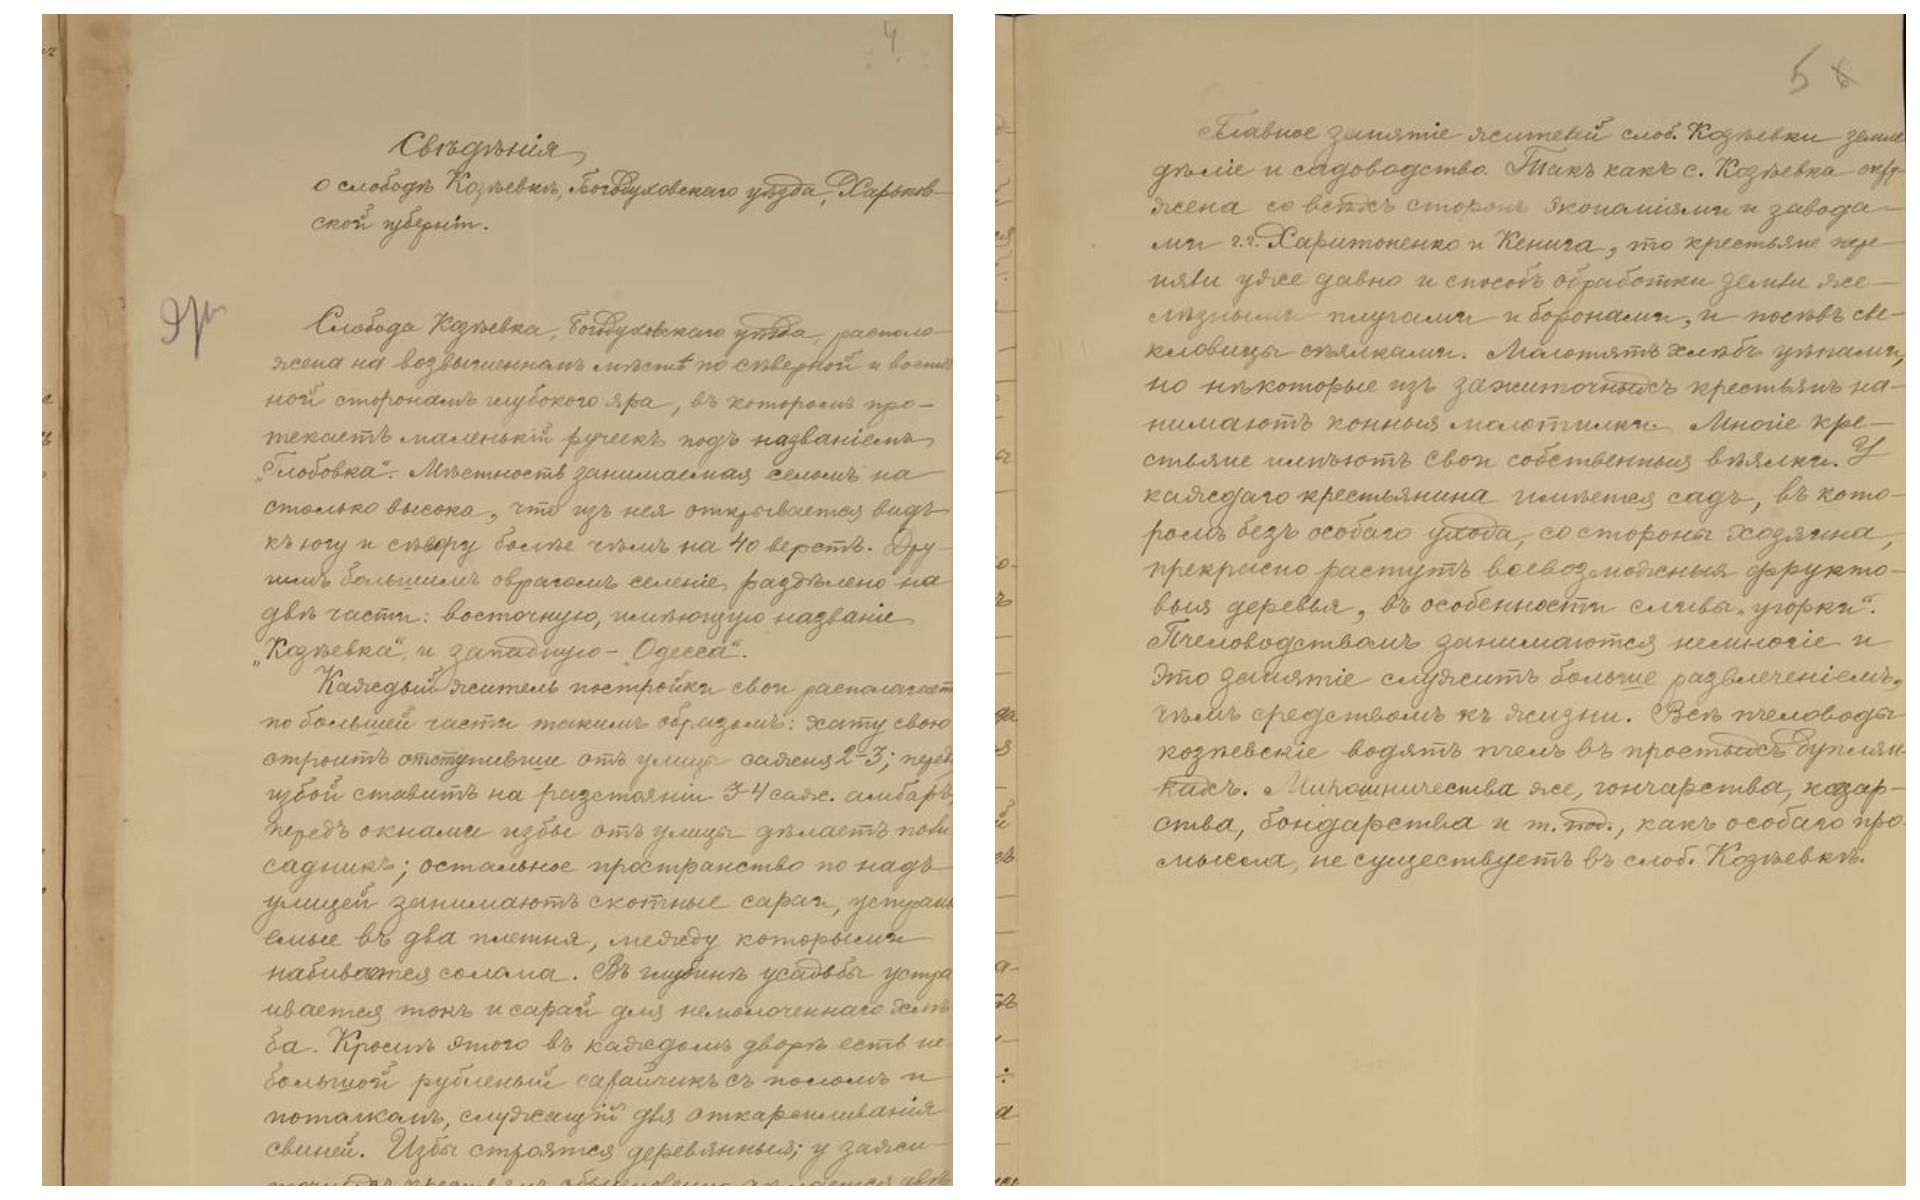 4
Свѣдѣнія
о слободѣ Козѣевкѣ, Богодуховскаго уѣзда, Харьков-
ской губерніи.
Слобода Козѣевка, Богодуховскаго уѣзда, располо-
жена на возвышенномъ мѣстѣ по сѣверной и восточ
ной сторонамъ глубокого яра, въ которомъ про-
текаетъ маленькій ручеекъ подъ названіемъ
„Глобовка“. Мѣстность занимаемая селомъ на
столько высока, что изъ нея открывается видъ
къ югу и сѣверу болѣе чѣмъ на 40 верстъ. Дру-
гимъ большимъ оврагомъ селеніе раздѣлено на
двѣ части: восточную, имѣющую названіе
„Козѣевка“, и западную – „Одесса“.
Каждый житель постройки свои располагает
по большей части такимъ образомъ: хату свою
строитъ отступивши отъ улицы сажня 2-3; передъ
избой ставитъ на разстояніи 3-4 саж. амбаръ,
передъ окнами избы отъ улицы дѣлаетъ пали
садникъ; остальное пространство по надъ
улицей занимаютъ скотные сараи, устраив
емые въ два плетня, между которыми
набивается солома. Въ глубинѣ усадьбы устра
ивается токъ и сарай для немолоченнаго хлѣ
ба. Кромѣ этого въ каждомъ дворѣ есть не-
большой рубленый сарайчикъ съ поломъ и
потолкомъ, служащій для откармливанія
свиней. Избы строятся деревянныя; у зажи-
точныхъ крестьянъ обыкновенно дѣлается двѣ
5
Главное занятіе жителей слоб. Козѣевки земле
дѣліе и садоводство. Такъ какъ с. Козѣевка окру-
жена со всѣхъ сторонъ экономіями и завода-
ми г.г. Харитоненко и Кенига, то крестьяне пере-
няли уже давно и способъ обработки земли же-
лѣзными плугами и боронами, и посѣвъ све-
кловицы сѣялками. Молотятъ хлѣбъ цѣпами,
но нѣкоторые изъ зажиточныхъ крестьянъ на-
нимаютъ конныя молотилки. Многіе кре-
стьяне имѣютъ свои собственныя вѣялки. У
каждаго крестьянина имѣется садъ, въ кото-
ромъ безъ особаго ухода, со стороны хозяина,
прекрасно растутъ всевозможныя фрукто-
выя деревья, въ особенности сливы „угорки“.
Пчеловодствомъ занимаются немногіе и
это занятіе служитъ больше развлеченіемъ,
чѣмъ средствомъ къ жизни. Всѣ пчеловоды
козѣевскіе водятъ пчелъ въ простыхъ дуплян-
кахъ. Мирошничества же, гончарства, коцар-
ства, бондарства и т. под., какъ особаго про
мысла, не существуетъ въ слоб. Козѣевкѣ.